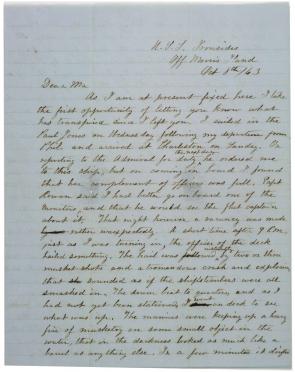 U.S.S. Ironsides
Off Morris Island
Oct 8th/63
Dear Ma
As I am at present fixed here I take
the first opportunity of letting you know what
has transpired since I left you. I sailed in the
Paul Jones on Wednesday following my departure from
Phil and arrived at Charleston on Sunday. On
the next day
reporting to the Admiral for duty he ordered me
to this ship, but on coming on board I found
that her complement of officers was full. Capt
Rowan said I had better go on board one of the
monitors and that he would see the fleet captain
about it. That night however a vacancy was made
rather unexpectedly. A short time after 9 P.M.
just as I was turning in, the officer of the deck
hailed something. The hail was followed by two or three
musket shots and a tremendous crash and explosion
that sounded as if the ship's timbers were all
smashed in. The drum beat to quarters, and as I
had not yet been stationed I went on deck to see
what was up. The marines were keeping up a heavy
fire of musketry on some small object in the
water, that in the darkness looked as much like a
barrel as anything else. In a few minutes it